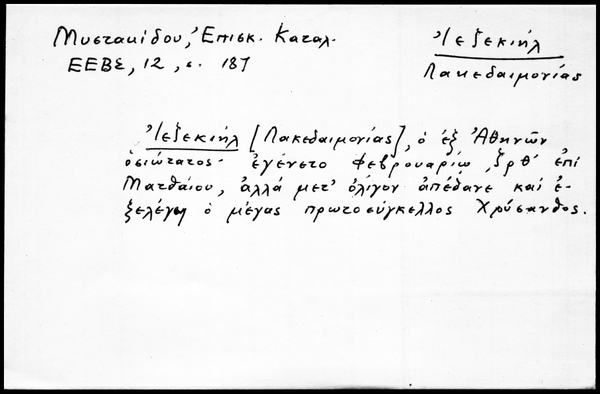 Μυστακίδου, Ἐπισκ. Καταλ.
ΕΕΒΣ, 12, σ. 187
Ἰεζεκιήλ
Λακεδαιμονίας
Ἰεζεκιήλ [Λακεδαιμονίας], ὁ ἐξ Ἀθηνῶν
ὁσιώτατος· ἐγένετο Φεβρουαρίῳ ͵ζρθʹ ἐπὶ
Ματθαίου, ἀλλά μετ' ὀλίγον ἀπέθανε καί ἐ-
ξελέγη ὁ μέγας πρωτοσύγκελλος Χρύσανθος.